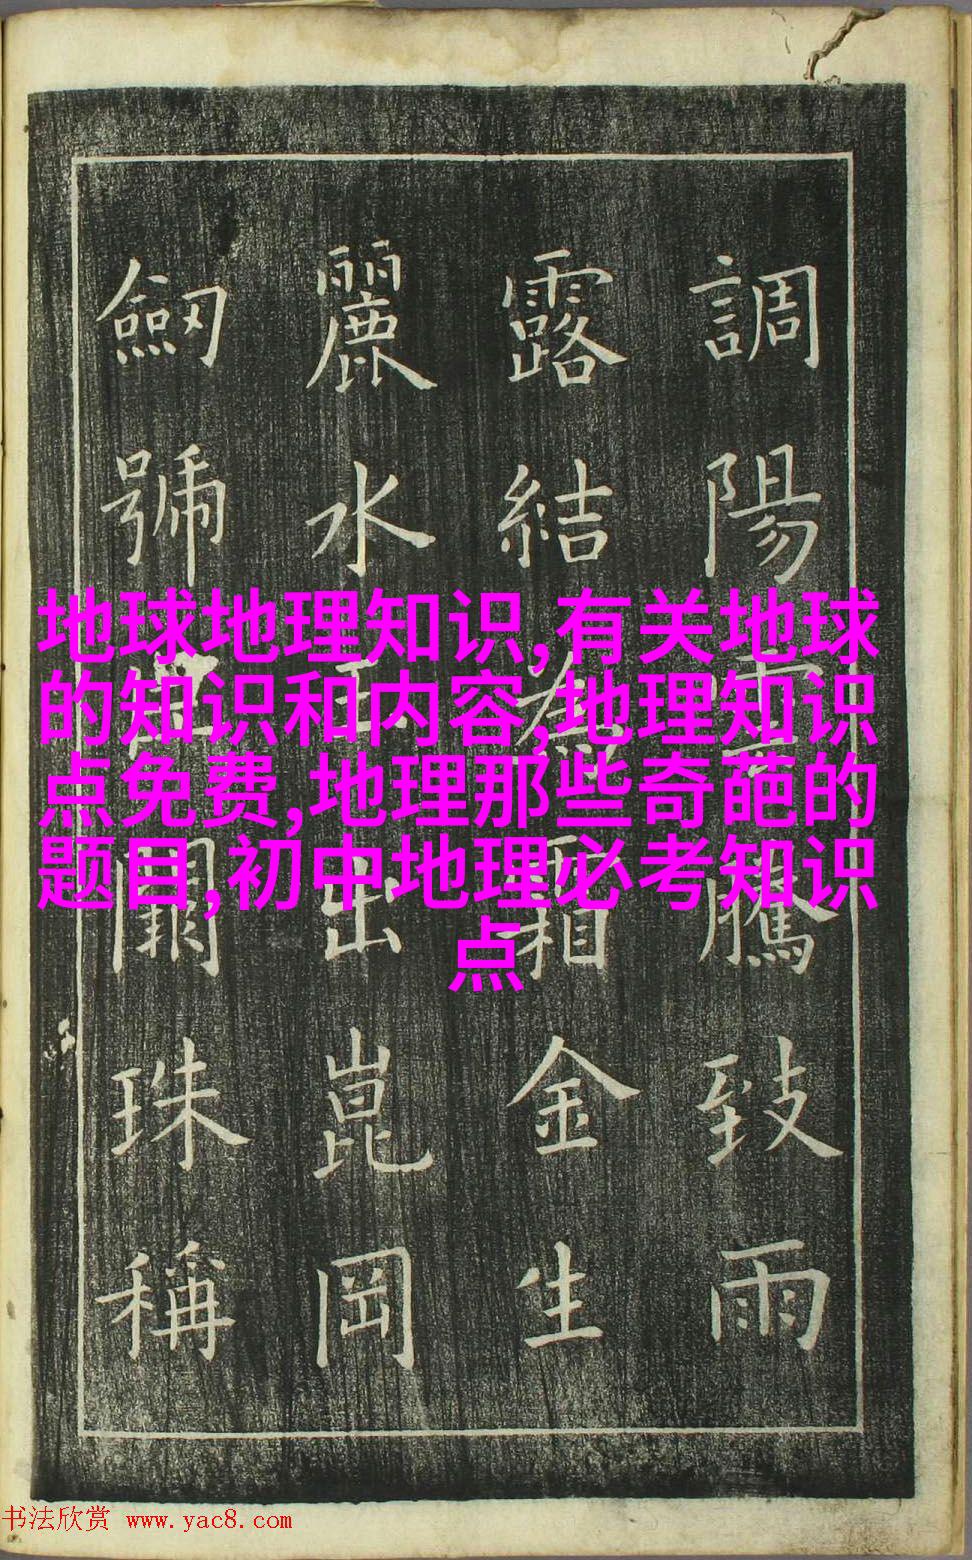 調陽雲騰致雨
露結為霜金生
麗水玉出崑岡
劒號巨闕珠稱
地球地理知识,有关地球
的知识和内容,地理知识
点免费,地理那些奇葩的
题目,初中地理必考知识
点
书法欣赏 www.yac8.com